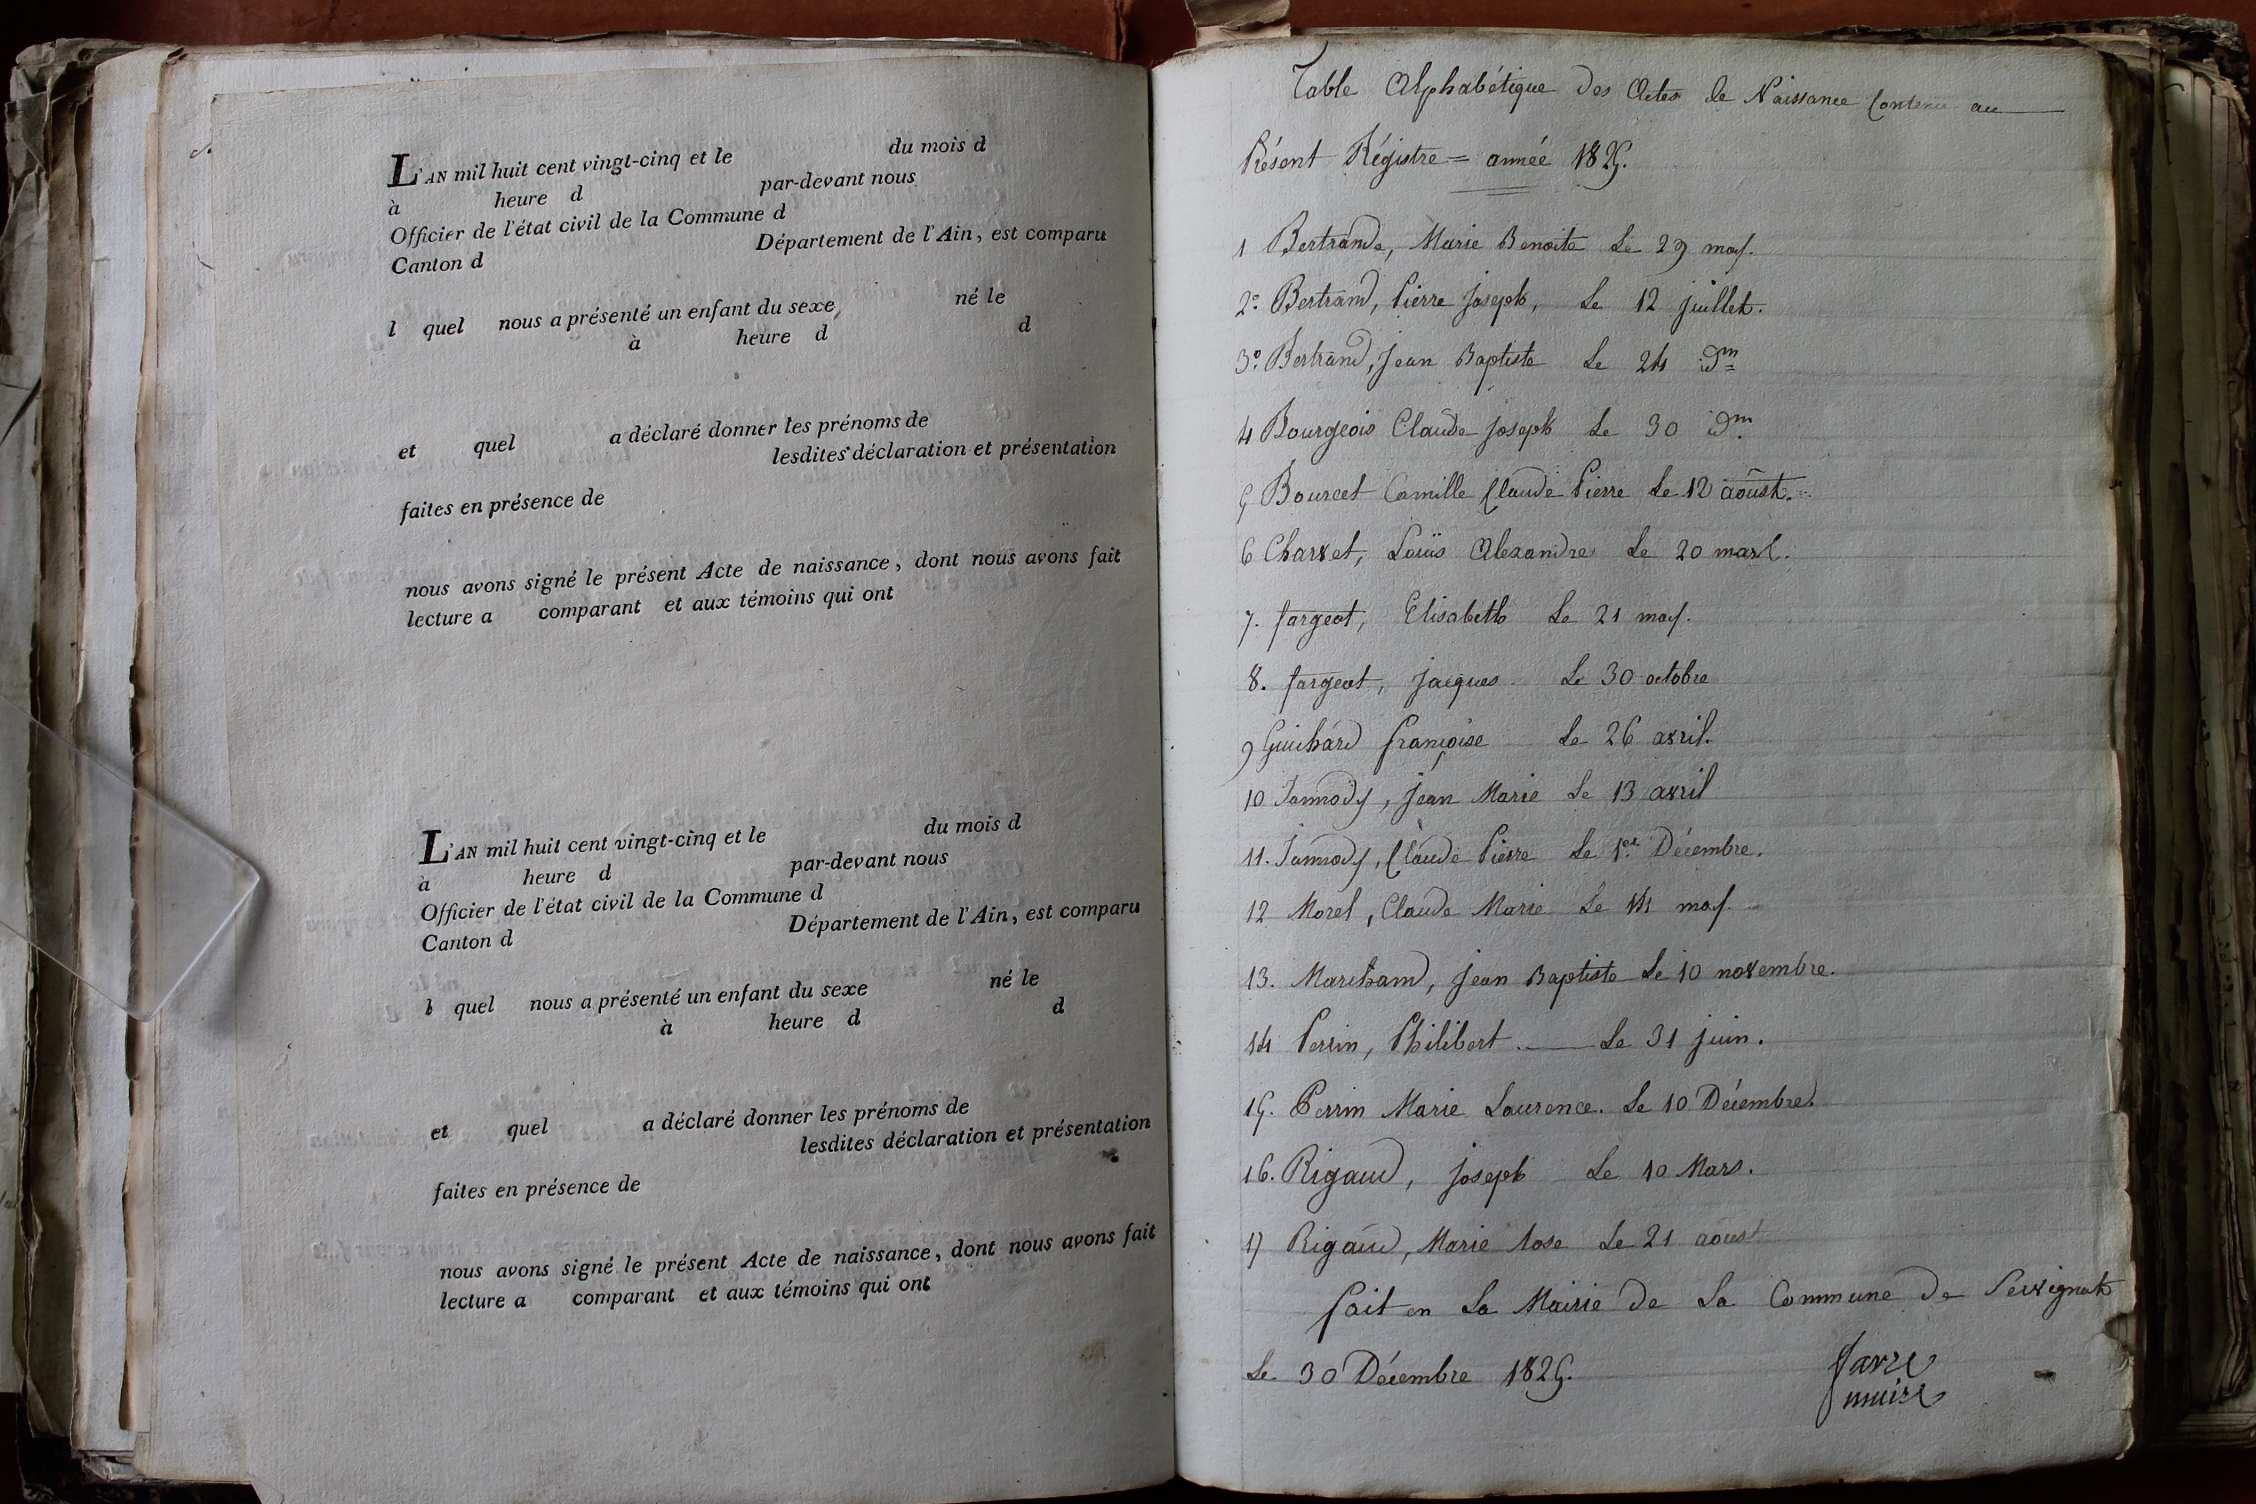 L'AN mil huit cent vingt-cinq et le du mois d
à heure d par-devant nous
Officier de l'état civil de la Commune d
Canton d Département de l'Ain, est comparu
l quel nous a présenté un enfant du sexe né le
à heure d d
et quel a déclaré donner les prénoms de
lesdites déclaration et présentation
faites en présence de
nous avons signé le présent Acte de naissance, dont nous avons fait
lecture a comparant et aux témoins qui ont
L'AN mil huit cent vingt-cinq et le du mois d
à heure d par-devant nous
Officier de l'état civil de la Commune d
Canton d Département de l'Ain, est comparu
l quel nous a présenté un enfant du sexe né le
à heure d d
et quel a déclaré donner les prénoms de
lesdites déclaration et présentation
faites en présence de
nous avons signé le présent Acte de naissance, dont nous avons fait
lecture a comparant et aux témoins qui ont
Table Alphabétique des Actes de Naissance Contenu au
Présent Régistre = année 1825.
1 Bertrande, Marie Benoite Le 29 may.
2º Bertrand, Pierre joseph, Le 12 juillet.
3º Bertrand, jean Baptiste Le 24 dm
4 Bourgeois Claude joseph Le 30 dm
5 Bourcet Camille Claude Pierre Le 12 aoust.
6 Charvet, Louis Alexandre Le 20 mars.
7. fargeot, Elisabeth Le 21 may.
8. fargeot, jacques Le 30 octobre
9 Guichard françoise Le 26 avril.
10 Jannody, jean Marie Le 13 avril
11. Jannody, Claude Pierre Le 1er Décembre.
12 Morel, Claude Marie Le 14 may.
13. Marchand, jean Baptiste Le 10 novembre.
14 Perrin, Philibert Le 31 juin.
15. Perrin Marie Laurence. Le 10 Décembre.
16. Rigaud, joseph Le 10 Mars.
17 Rigaud, Marie Rose Le 21 aoust
fait en La Mairie de La Commune de Servignat
Le 30 Décembre 1825.
favre
maire